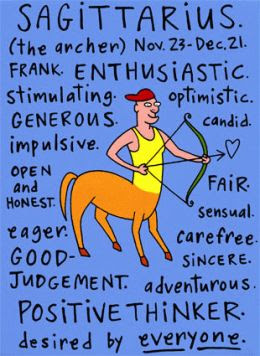 SAGITTARIUS.
(the archer) Nov. 23-Dec. 21.
FRANK. ENTHUSIASTIC.
stimulating. optimistic.
GENEROUS. candid.
impulsive.
OPEN
and
HONEST.
FAIR.
sensual.
eager. carefree.
GOOD-
JUDGEMENT.
SINCERE.
adventurous.
POSITIVE THINKER.
desired by everyone.